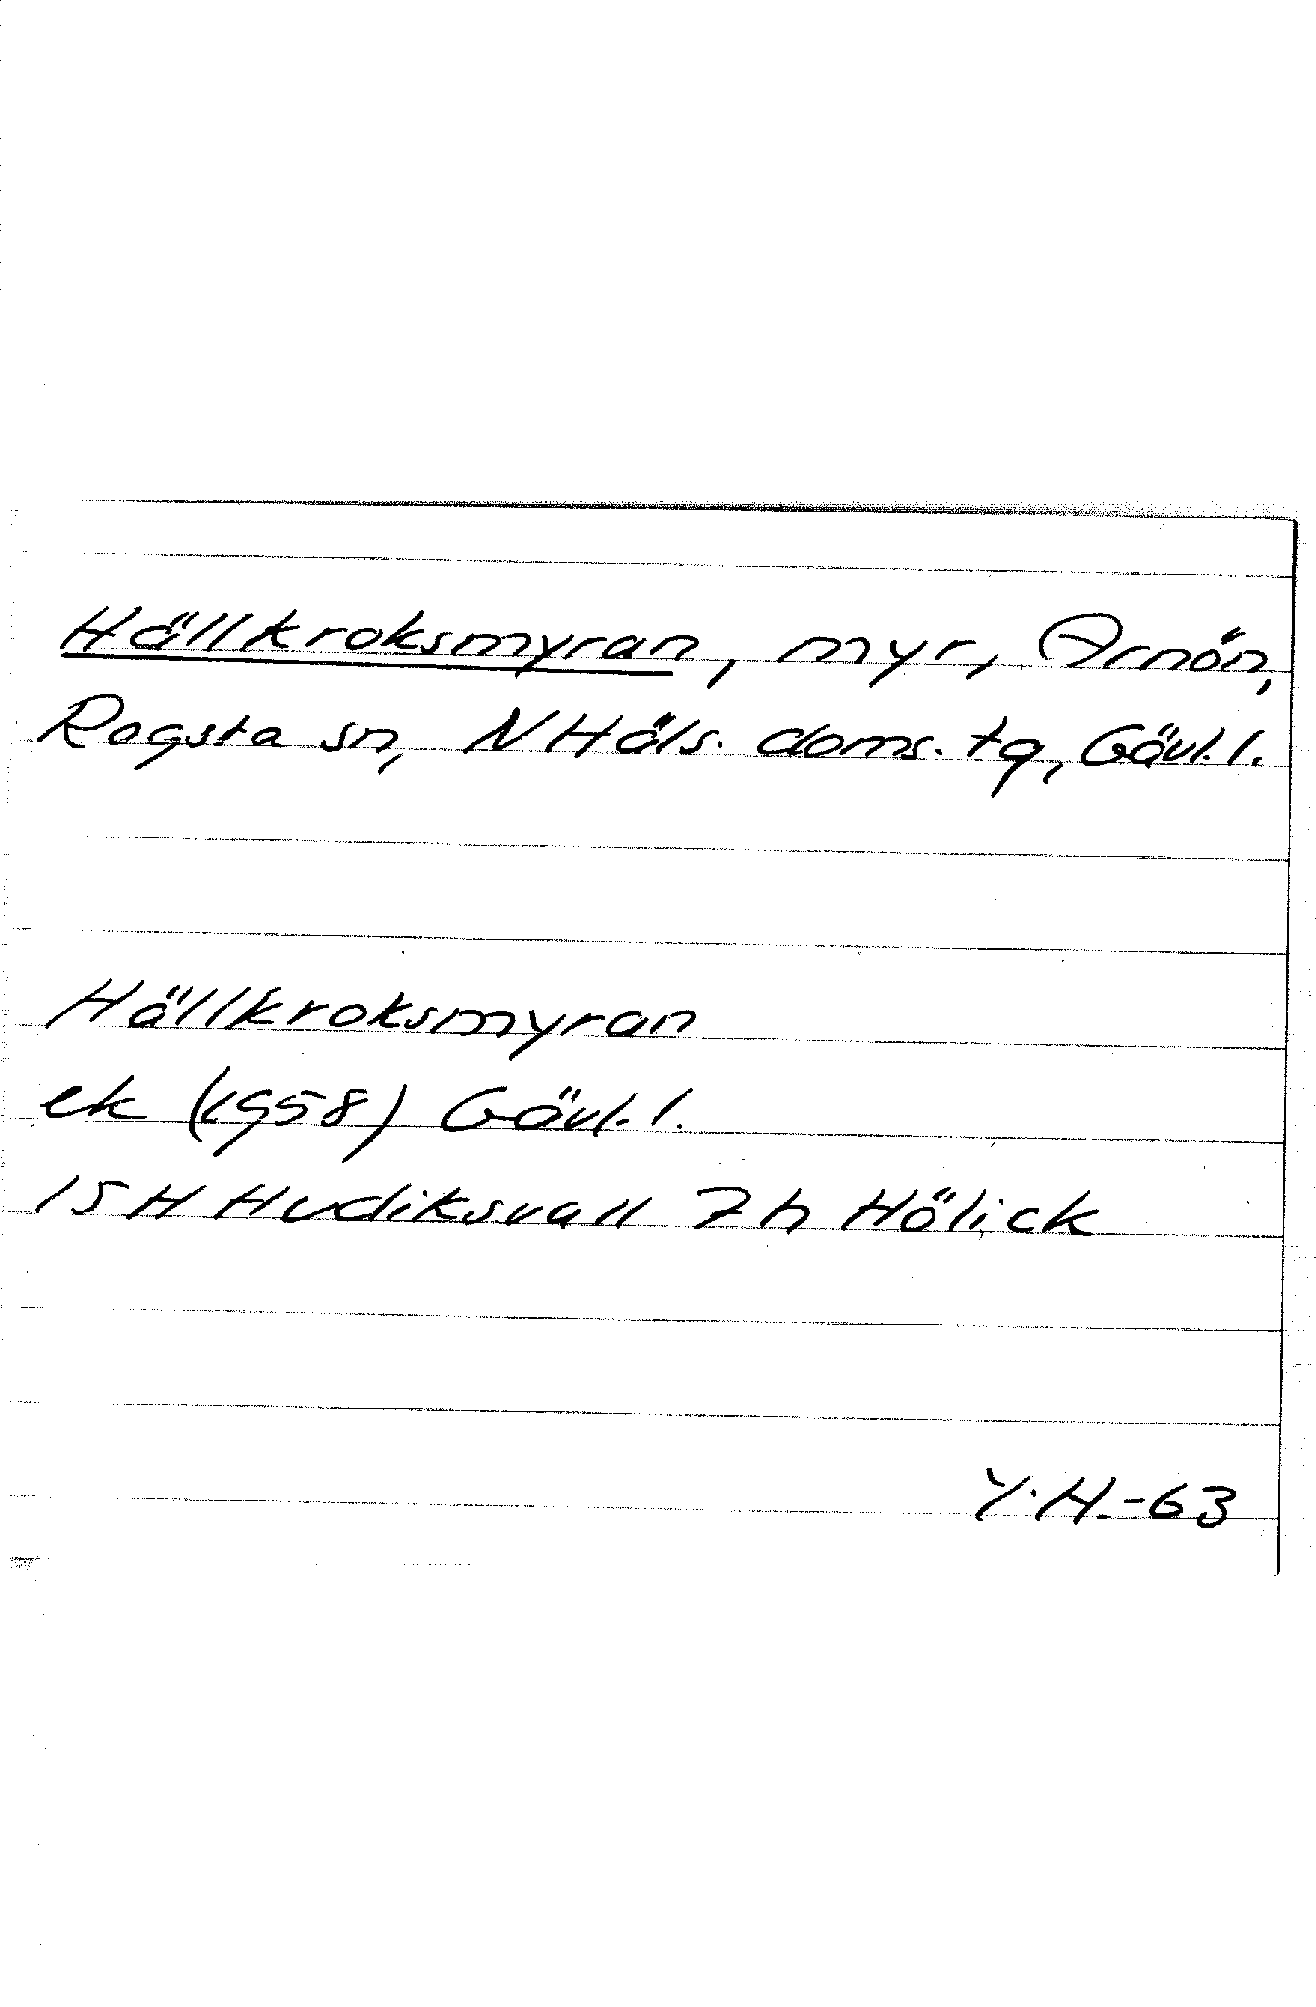 Hällkroksmyran, myr, Arnön,
Rogsta sn, NHäls. doms. tg, Gävl. l.
Hällkroksmyran
ek (1958) Gävl. l.
15H Hudiksvall 7h Hölick
Y.H.-63